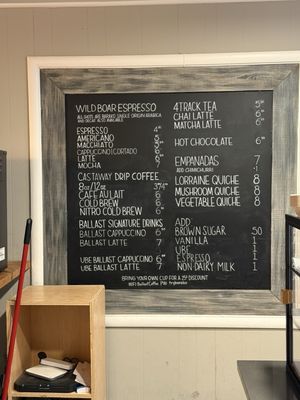 WILD BOAR ESPRESSO
ALL SHOTS ARE BREWED SINGLE ORIGIN ARABICA
AND DECAF ALSO AVAILABLE
ESPRESSO 4
AMERICANO 5
MACCHIATO 5
CAPPUCCINO/CORTADO
LATTE
MOCHA 7
CASTAWAY DRIP COFFEE
8oz/12oz
CAFE AU LAIT 6
COLD BREW 6
NITRO COLD BREW 6
BALLAST SIGNATURE DRINKS
BALLAST CAPPUCCINO 6
BALLAST LATTE 7
UBE BALLAST CAPPUCCINO 6
UBE BALLAST LATTE 7
4TRACK TEA 5
CHAI LATTE 6
MATCHA LATTE 6
HOT CHOCOLATE 6
EMPANADAS 7
ADD CHIMICHURRI 1
LORRAINE QUICHE 8
MUSHROOM QUICHE 8
VEGETABLE QUICHE 8
ADD
BROWN SUGAR 50
VANILLA 1
UBE 1
ESPRESSO 1
NON-DAIRY MILK 1
BRING YOUR OWN CUP FOR A 25¢ DISCOUNT
WIFI BallastCoffee PW